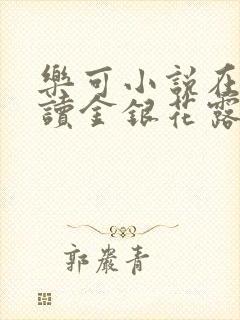 樂可小說在
讀金銀花露
郭嚴青